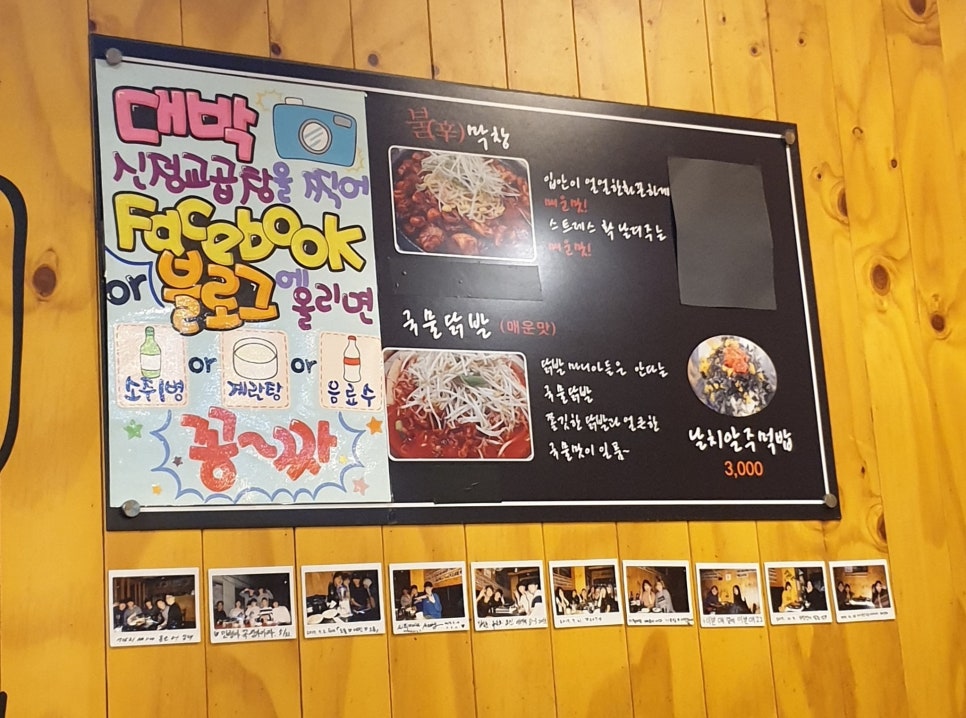 대박
신정교곱창을 찍어
Facebook
or 블로그에 올리면
소주1병 or 계란탕 or 음료수
꽁~짜
불(辛)막창
입안이 얼얼한화끈하게
매운맛!
스트레스 확 날려주는
매운맛!
국물닭발 (매운맛)
닭발 마니아들은 안다는
국물닭발
쫄깃한 닭발과 얼큰한
국물맛이 일품~
날치알주먹밥
3,000